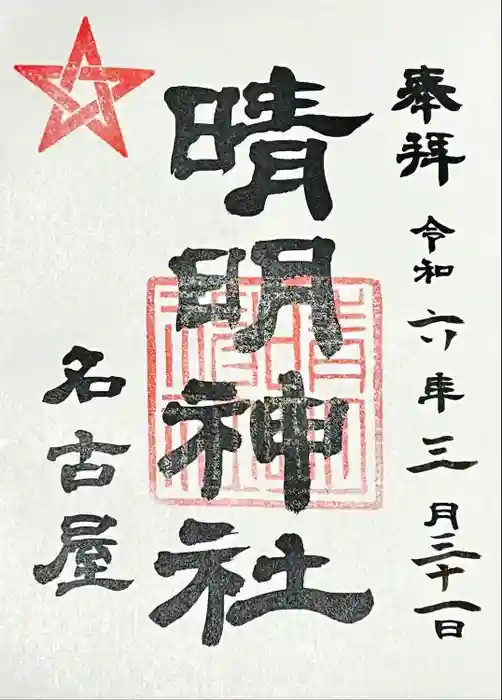 奉拝 令和六年三月三十一日
晴明神社
名古屋